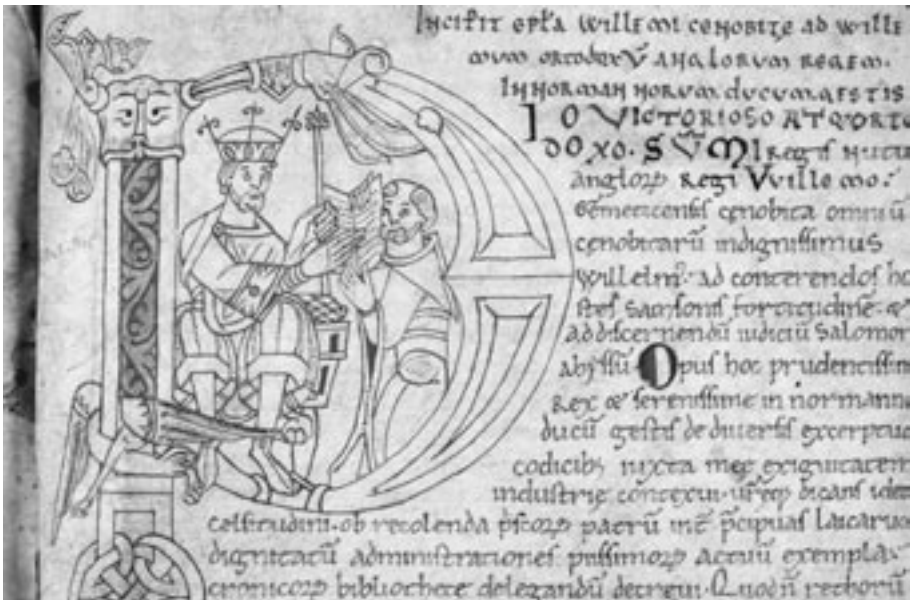 INCIPIT EPLA WILLEMI CENOBITE AD WILLE
MUM ORTODOXŪ ANGLORUM REGEM.
IN NORMANNORUM DUCUM GESTIS
IO VICTORIOSO ATQ ORTO
DOXO. SŪMI Regis NUTU
angloꝝ Regi Willemo.
Gemeticensis cenobita omniū
cenobitarū indignissimus
Willelm' ad conterendos ho
stes samsonis fortitudinē &
ad discernendū iudiciū Salomon
abyssū. Opus hoc prudentissim
Rex & serenissime in normanno
ducū gestis de diuersis excerptum
codicibꝫ iuxta meę exiguitatem
industrię contexui.
celsitudini. ob recolenda pscoꝝ patrū in pcipuas laicaru
dignitatū administrationes piissimoꝝ actuū exempla
cronicoꝝ bibliothecę delegandū decreui. Quod n rethorū